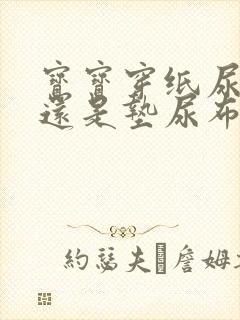 寶寶穿纸尿
還是墊尿布
約瑟夫 詹姆